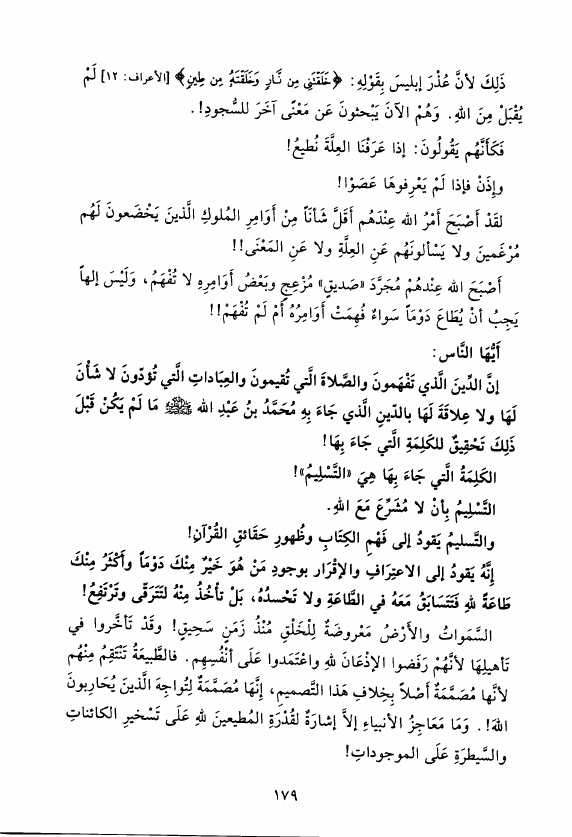 ذَلِكَ لأنَّ عُذْرَ إبليسَ بِقَوْلِهِ: ﴿خَلَقْتَنِي مِن نَّارٍ وَخَلَقْتَهُ مِن طِينٍ﴾ [الأعراف: ١٢] لَمْ
يُقْبَلْ مِنَ اللهِ. وَهُم الآنَ يَبْحثونَ عَن مَعْنًى آخَرَ للسُّجودِ!.
فَكَأنَّهُم يَقُولُونَ: إذا عَرَفْنَا العِلَّةَ نُطيعُ!
وإذَنْ فإذا لَمْ يَعْرِفوهَا عَصَوْا!
لقَدْ أصْبَحَ أمْرُ الله عِنْدَهُم أقَلَّ شَأنَاً مِنْ أوَامِرِ المُلوكِ الَّذينَ يَخْضَعونَ لَهُم
مُرْغَمينَ ولا يَسْألونَهُم عَنِ العِلَّةِ ولا عَنِ المَعْنَى!!
أصْبَحَ الله عِندهُمْ مُجَرَّدَ «صَديقٍ» مُزْعِجٍ وبَعْضُ أوَامِرِهِ لا تُفْهَمُ، وَلَيْسَ إلهاً
يَجِبُ أنْ يُطَاعَ دَوْمَاً سَواءٌ فُهِمَتْ أوَامِرُهُ أمْ لَمْ تُفْهَمْ!!
أيُّهَا النَّاس:
إنَّ الدِّينَ الَّذي تَفْهَمونَ والصَّلاةَ الَّتي تُقيمونَ والعِبَاداتِ الَّتي تُؤدّونَ لا شَأْنَ
لَهَا ولا عِلاقَةَ لَهَا بالدِّينِ الَّذي جَاءَ بِهِ مُحَمَّدُ بنُ عَبْدِ الله ﷺ مَا لَمْ يَكُنْ قَبْلَ
ذَلِكَ تَحْقِيقٌ للكَلِمَةِ الَّتي جَاءَ بِهَا!
الكَلِمَةُ الَّتي جَاءَ بِهَا هِيَ «التَّسْلِيمُ»!
التَّسْلِيمُ بِأنْ لا مُشَرِّعَ مَعَ اللهِ.
والتَّسليمُ يَقودُ إلى فَهْمِ الكِتَابِ وظُهورِ حَقَائقِ القُرْآنِ!
إنَّهُ يَقودُ إلى الاعتِرافِ والإقْرَار بوجودِ مَنْ هُوَ خَيْرٌ مِنْكَ دَوْمَاً وأكْثَرُ مِنْكَ
طَاعَةً لله فَتَتَسَابَقُ مَعَهُ في الطَّاعَةِ ولا تَحْسدُهُ، بَلْ تأخُذُ مِنْهُ لتَتَرقّى وتَرْتَفِعُ!
السَّمَواتُ والأرْضُ مَعْروضَةٌ لِلْخَلْقِ مُنْذُ زَمَنٍ سَحِيقٍ! وقَدْ تَأخَّروا في
تَأهيلِهَا لأنَّهُمْ رَفَضوا الإذْعَانَ للهِ واعْتَمَدوا عَلَى أنْفُسِهِم. فالطَّبيعَةُ تَنْتَقِمُ مِنْهُم
لأنَّها مُصَمَّمَةٌ أصْلاً بِخِلافِ هَذا التَّصميمِ، إنَّهَا مُصَمَّمَةٌ لِتُواجِهَ الَّذينَ يُحَارِبونَ
اللهَ!. وَمَا مَعَاجِزُ الأنبياءِ إلاَّ إشارَةٌ لقُدْرَةِ المُطيعينَ للهِ عَلَى تَسْخيرِ الكائناتِ
والسَّيطرَةِ عَلَى الموجوداتِ!
١٧٩